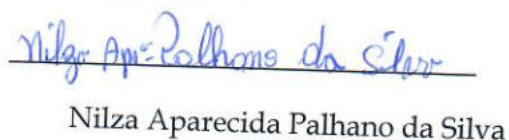 Nilza Apª Palhano da Silva
Nilza Aparecida Palhano da Silva